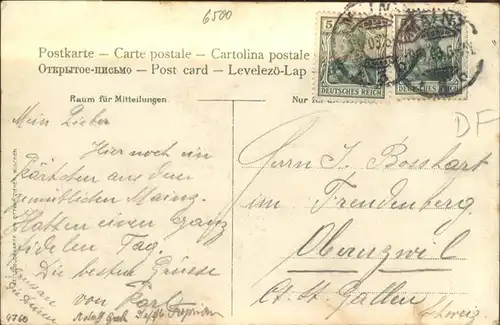 6500
Postkarte — Carte postale — Cartolina postale
Открытое-письмо — Post card — Levelezö-Lap
5
DEUTSCHES REICH
DEUTSCHES REICH
MAINZ
Raum für Mitteilungen
DF
Mein Lieber
Hier noch ein
Kärtchen aus dem
gemütlichen Mainz.
Hatten einen ganz
fidelen Tag.
Die besten Grüsse
von Karl
Herrn J. Bosshart
im Freudenberg
Oberuzwil
Ct. St. Gallen
Schweiz
4760